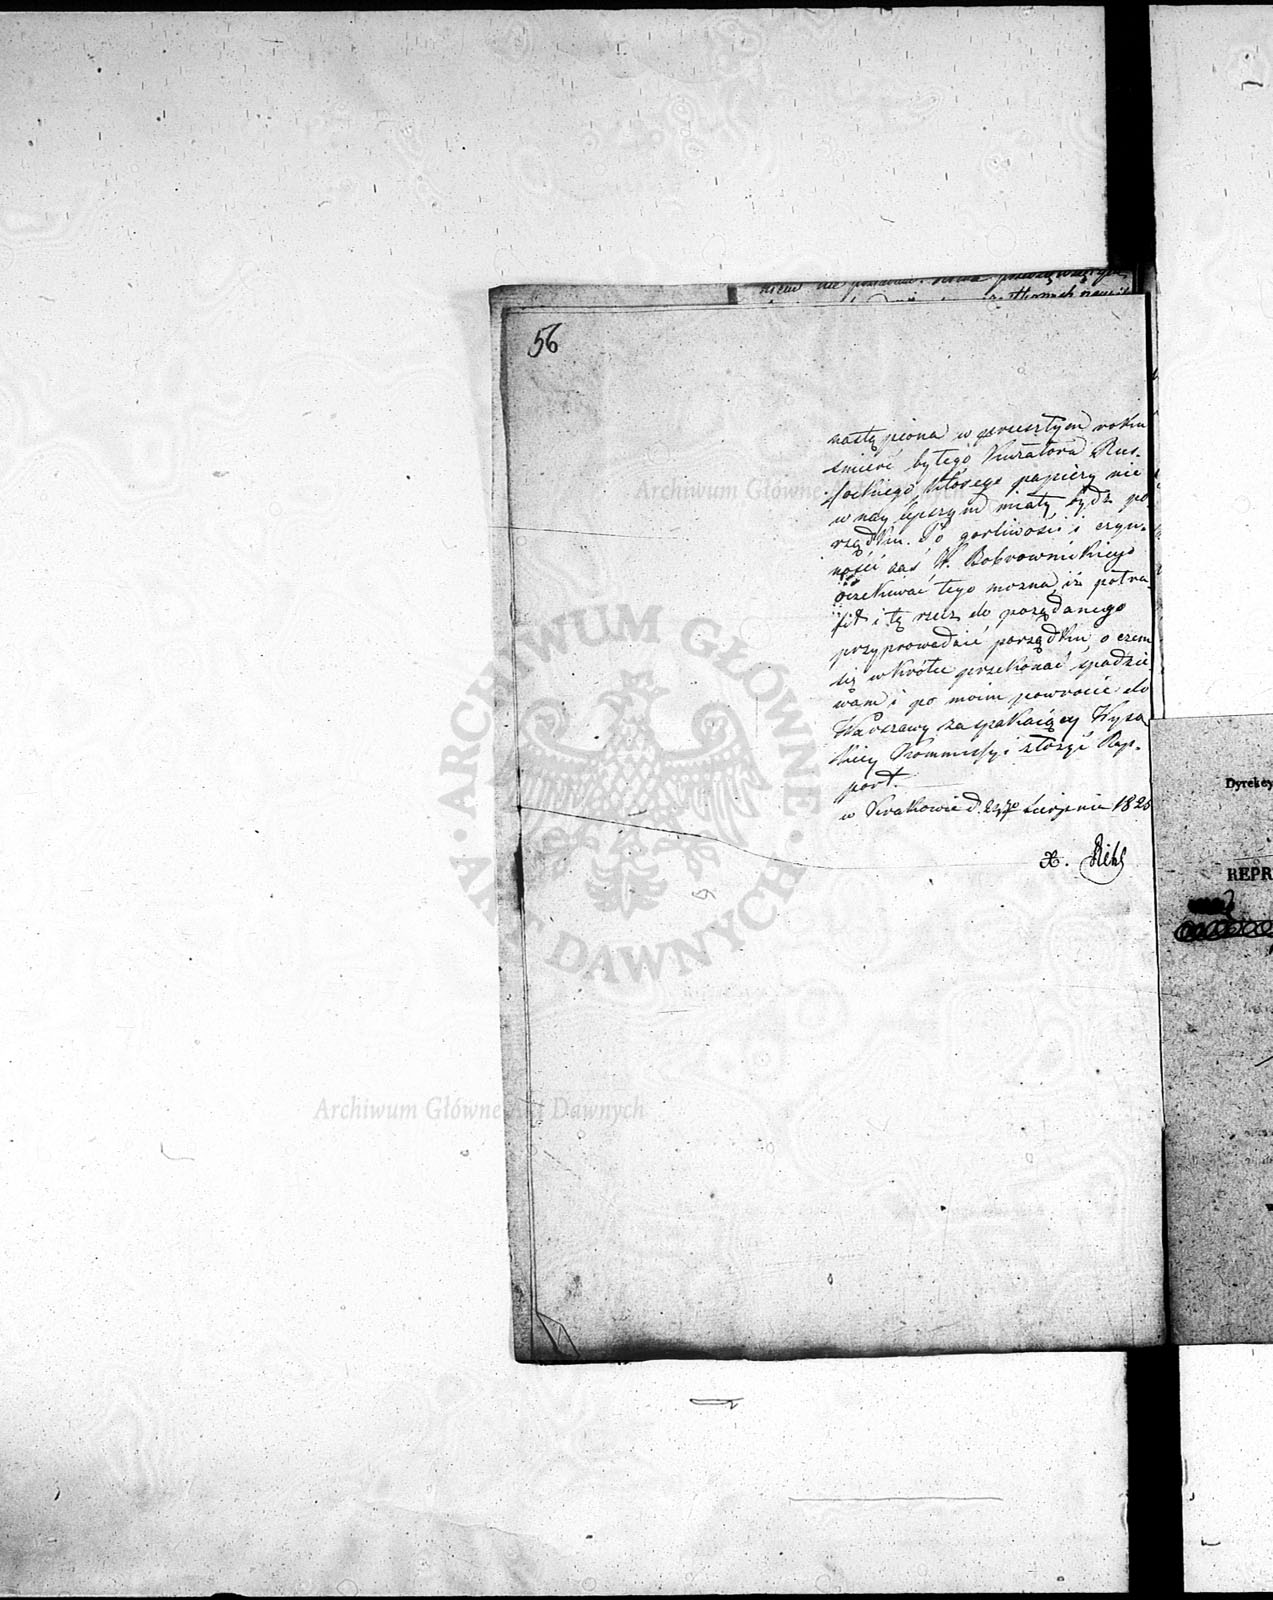 56
nastąpiona w przeszłym roku
śmierć byłego Kuratora Rus-
sockiego, którego papiery nie
w naylepszym miały bydź po-
rządku. Po gorliwości i czyn-
ności zaś W. Bobrownickiego
oczekiwać tego można, iż potra-
fił i tę rzecz do pożądanego
przyprowadzić porządku, o czem
się wkrótce przekonać spodzie-
wam i po moim powrocie do
Warszawy zaspakaiaiący Wyso-
kiey Kommissyi złożyć Rap-
port.
w Krakowie d. Sierpnia 1825
X.
Dyrekcy
REPR
ARCHIWUM GŁÓWNE AKT DAWNYCH
Archiwum Główne Akt Dawnych
Archiwum Główne Akt Dawnych